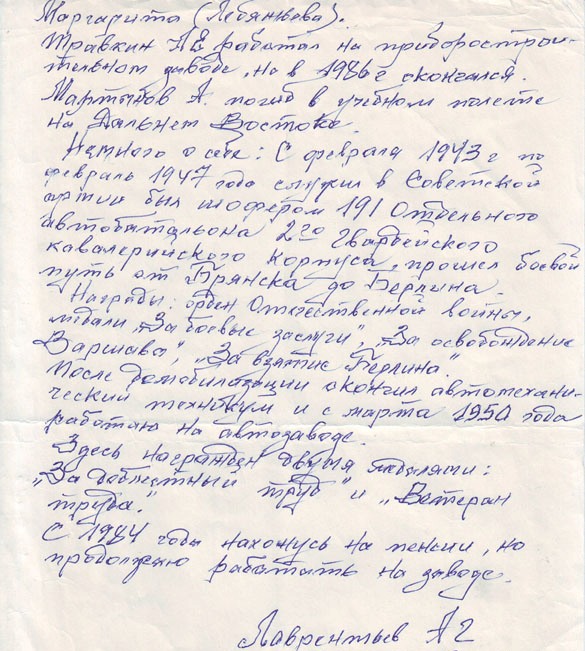 Маргарита (Лебянжева).
Травкин АЕ работал на приборострои-
тельном заводе, но в 1986г скончался.
Мартынов А. погиб в учебном полете
на Дальнем Востоке.
Немного о себе: С февраля 1943 г по
февраль 1947 года служил в Советской
армии был шофером 191 Отдельного
автобатальона 2го Гвардейского
кавалерийского Корпуса, прошел боевой
путь от Брянска до Берлина.
Награды: орден Отечественной войны,
медали „За боевые заслуги", „За освобождение
Варшава", „За взятие Берлина."
После демобилизации окончил автомехани-
ческий техникум и с марта 1950 года
работаю на автозаводе.
Здесь награжден двумя медалями:
„За доблестный труд" и „Ветеран
труда."
С 1984 годы нахожусь на пенсии, но
продолжаю работать на заводе.
Лаврентьев АГ